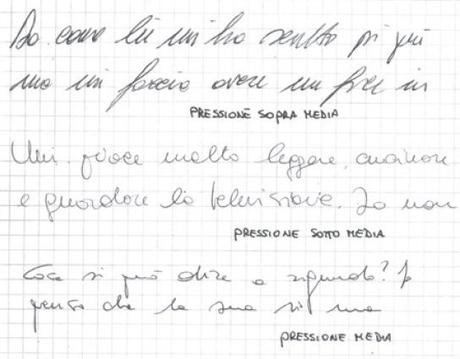 So come lui mi ho scritto più
ma mi faccio avere un in
PRESSIONE SOPRA MEDIA
Umi piace molto leggere, cucinare
e guardare la televisione. Io non
PRESSIONE SOTTO MEDIA
Cosa si può dire a riguardo? Io
penso che la sua sia una
PRESSIONE MEDIA